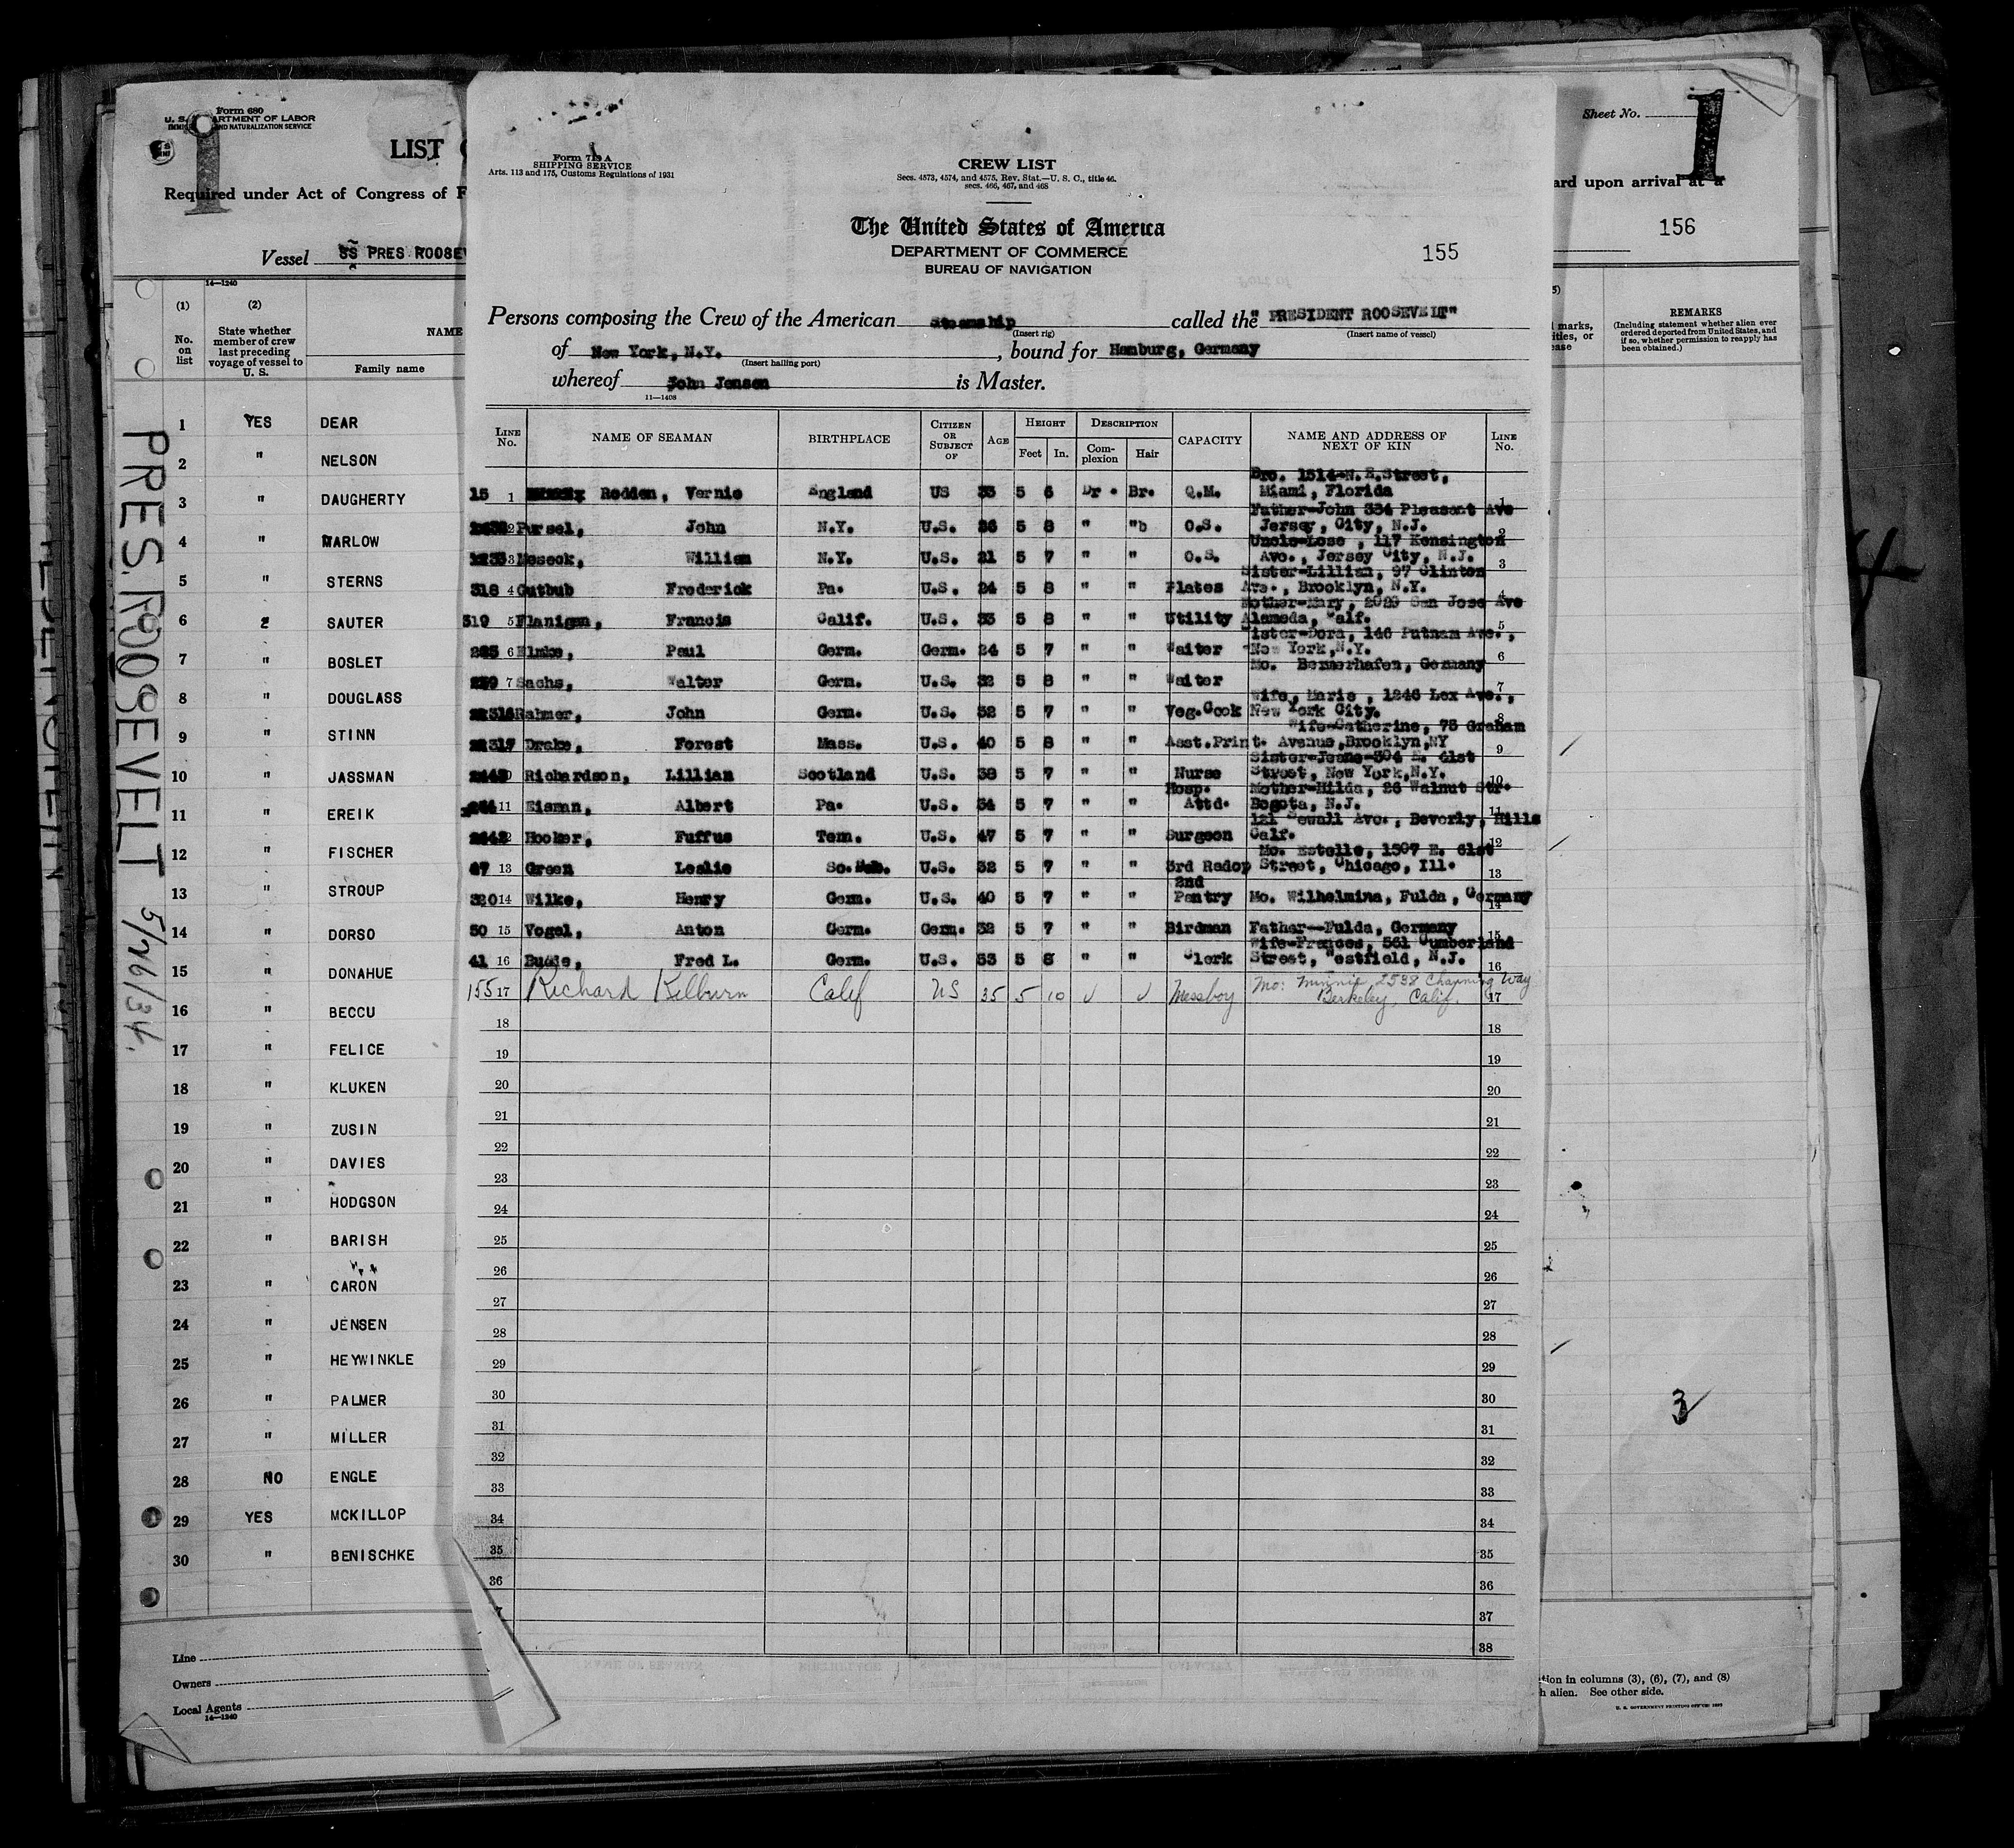 Form 680
U. S. DEPARTMENT OF LABOR
IMMIGRATION AND NATURALIZATION SERVICE
1
LIST
Required under Act of Congress of F
Vessel SS PRES ROOSEV
14—1240
(1) (2)
No. on list
State whether member of crew last preceding voyage of vessel to U. S.
NAME
Family name
1 YES DEAR
2 " NELSON
3 " DAUGHERTY
4 " MARLOW
5 " STERNS
6 " SAUTER
7 " BOSLET
8 " DOUGLASS
9 " STINN
10 " JASSMAN
11 " EREIK
12 " FISCHER
13 " STROUP
14 " DORSO
15 " DONAHUE
16 " BECCU
17 " FELICE
18 " KLUKEN
19 " ZUSIN
20 " DAVIES
21 " HODGSON
22 " BARISH
23 " CARON
24 " JENSEN
25 " HEYWINKLE
26 " PALMER
27 " MILLER
28 NO ENGLE
29 YES MCKILLOP
30 " BENISCHKE
Line
Owners
Local Agents
14—1240
PRES. ROOSEVELT 5/26/34.
Form 719 A
SHIPPING SERVICE
Arts. 113 and 175, Customs Regulations of 1931
CREW LIST
Secs. 4573, 4574, and 4575, Rev. Stat.—U. S. C., title 46.
secs. 466, 467, and 468
The United States of America
DEPARTMENT OF COMMERCE
BUREAU OF NAVIGATION
155
Persons composing the Crew of the American Steamship called the "PRESIDENT ROOSEVELT"
(Insert rig) (Insert name of vessel)
of New York, N.Y. , bound for Hamburg, Germany
(Insert hailing port)
whereof John Jensen is Master.
11—1408
LINE No. NAME OF SEAMAN BIRTHPLACE CITIZEN OR SUBJECT OF AGE HEIGHT Feet In. DESCRIPTION Complexion Hair CAPACITY NAME AND ADDRESS OF NEXT OF KIN LINE No.
Bro. 1514-N.E.Street,
15 1 Redden, Vernie England US 33 5 6 Dr. Br. Q.M. Miami, Florida 1
Father-John 334 Pleasant Ave
2 Pursel, John N.Y. U.S. 36 5 8 " " O.S. Jersey, City, N.J. 2
Uncle-Lose, 117 Kensington
3 Meseck, William N.Y. U.S. 21 5 7 " " O.S. Ave., Jersey City, N.Y. 3
Sister-Lillian, 97 Clinton
318 4 Gutbub Frederick Pa. U.S. 24 5 8 " " Plates Ave., Brooklyn, N.Y. 4
Mother-Mary, 2029 San Jose Ave
319 5 Flanigan, Francis Calif. U.S. 33 5 8 " " Utility Alameda, Calf. 5
Sister-Dora, 146 Putnam Ave.,
6 Paul Germ. Germ. 24 5 7 " " Waiter New York,N.Y. 6
Mo. Bemerhafen, Germany
7 Sachs, Walter Germ. U.S. 32 5 8 " " Waiter 7
Wife, Marie, 1246 Lex Ave.,
Rahmer, John Germ. U.S. 52 5 7 " " Veg.Cook New York City. 8
Wife-Catherine, 75 Graham
Drake, Forest Mass. U.S. 40 5 8 " " Asst.Print. Avenue,Brooklyn,NY 9
Sister-Jeane-304 E. 61st
Richardson, Lillian Scotland U.S. 38 5 7 " " Nurse Street, New York,N.Y. 10
Hosp. Mother-Hilda, 26 Walnut Str.
11 Eisman, Albert Pa. U.S. 34 5 7 " " Attd. Bogota, N.J. 11
121 Sewall Ave., Beverly, Hills
Hooker, Fuffus Tem. U.S. 47 5 7 " " Surgeon Calf. 12
Mo. Estelle, 1507 E. 61st
47 13 Green Leslie So. U.S. 32 5 7 " " 3rd Radop Street, Chicago, Ill. 13
2nd
320 14 Wilke, Henry Germ. U.S. 40 5 7 " " Pantry Mo. Wilhelmina, Fulda, Germany 14
50 15 Vogel, Anton Germ. Germ. 32 5 7 " " Birdman Father--Fulda, Germany 15
Wife-Frances, 561 Cumberland
41 16 Budde, Fred L. Germ. U.S. 53 5 8 " " Clerk Street, Westfield, N.J. 16
155 17 Richard Kilburn Calif US 35 5 10 Messboy Mo: Minnie 2538 Channing Way
Berkeley, Calif. 17
18 18
19 19
20 20
21 21
22 22
23 23
24 24
25 25
26 26
27 27
28 28
29 29
30 30
31 31
32 32
33 33
34 34
35 35
36 36
37
38
Sheet No.
1
ard upon arrival at a
156
REMARKS
(Including statement whether alien ever ordered deported from United States, and if so, whether permission to reapply has been obtained.)
3
tion in columns (3), (6), (7), and (8)
h alien. See other side.
U. S. GOVERNMENT PRINTING OFFICE